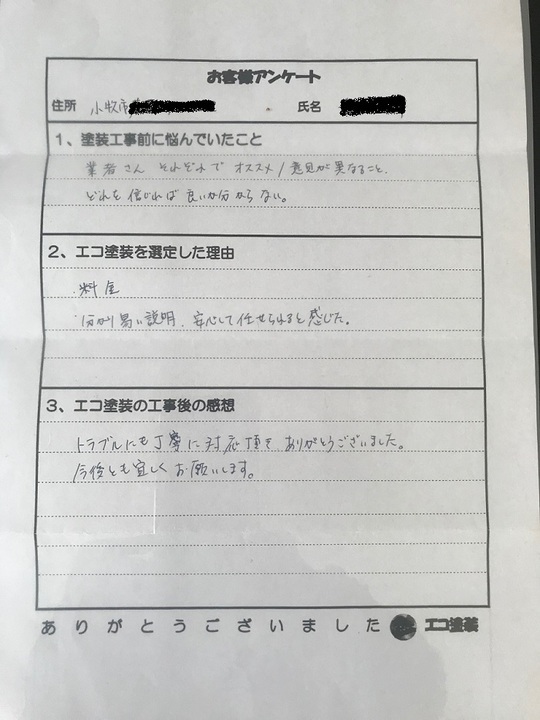 お客様アンケート
住所 小牧市 氏名
1、塗装工事前に悩んでいたこと
業者さん それぞれで オススメ/意見が異なること、
どれを信じれば良いか分からない。
2、エコ塗装を選定した理由
・料金
・分かり易い説明、安心して任せられると感じた。
3、エコ塗装の工事後の感想
トラブルにも丁寧に対応頂き、ありがとうございました。
今後とも宜しくお願いします。
ありがとうございました エコ塗装